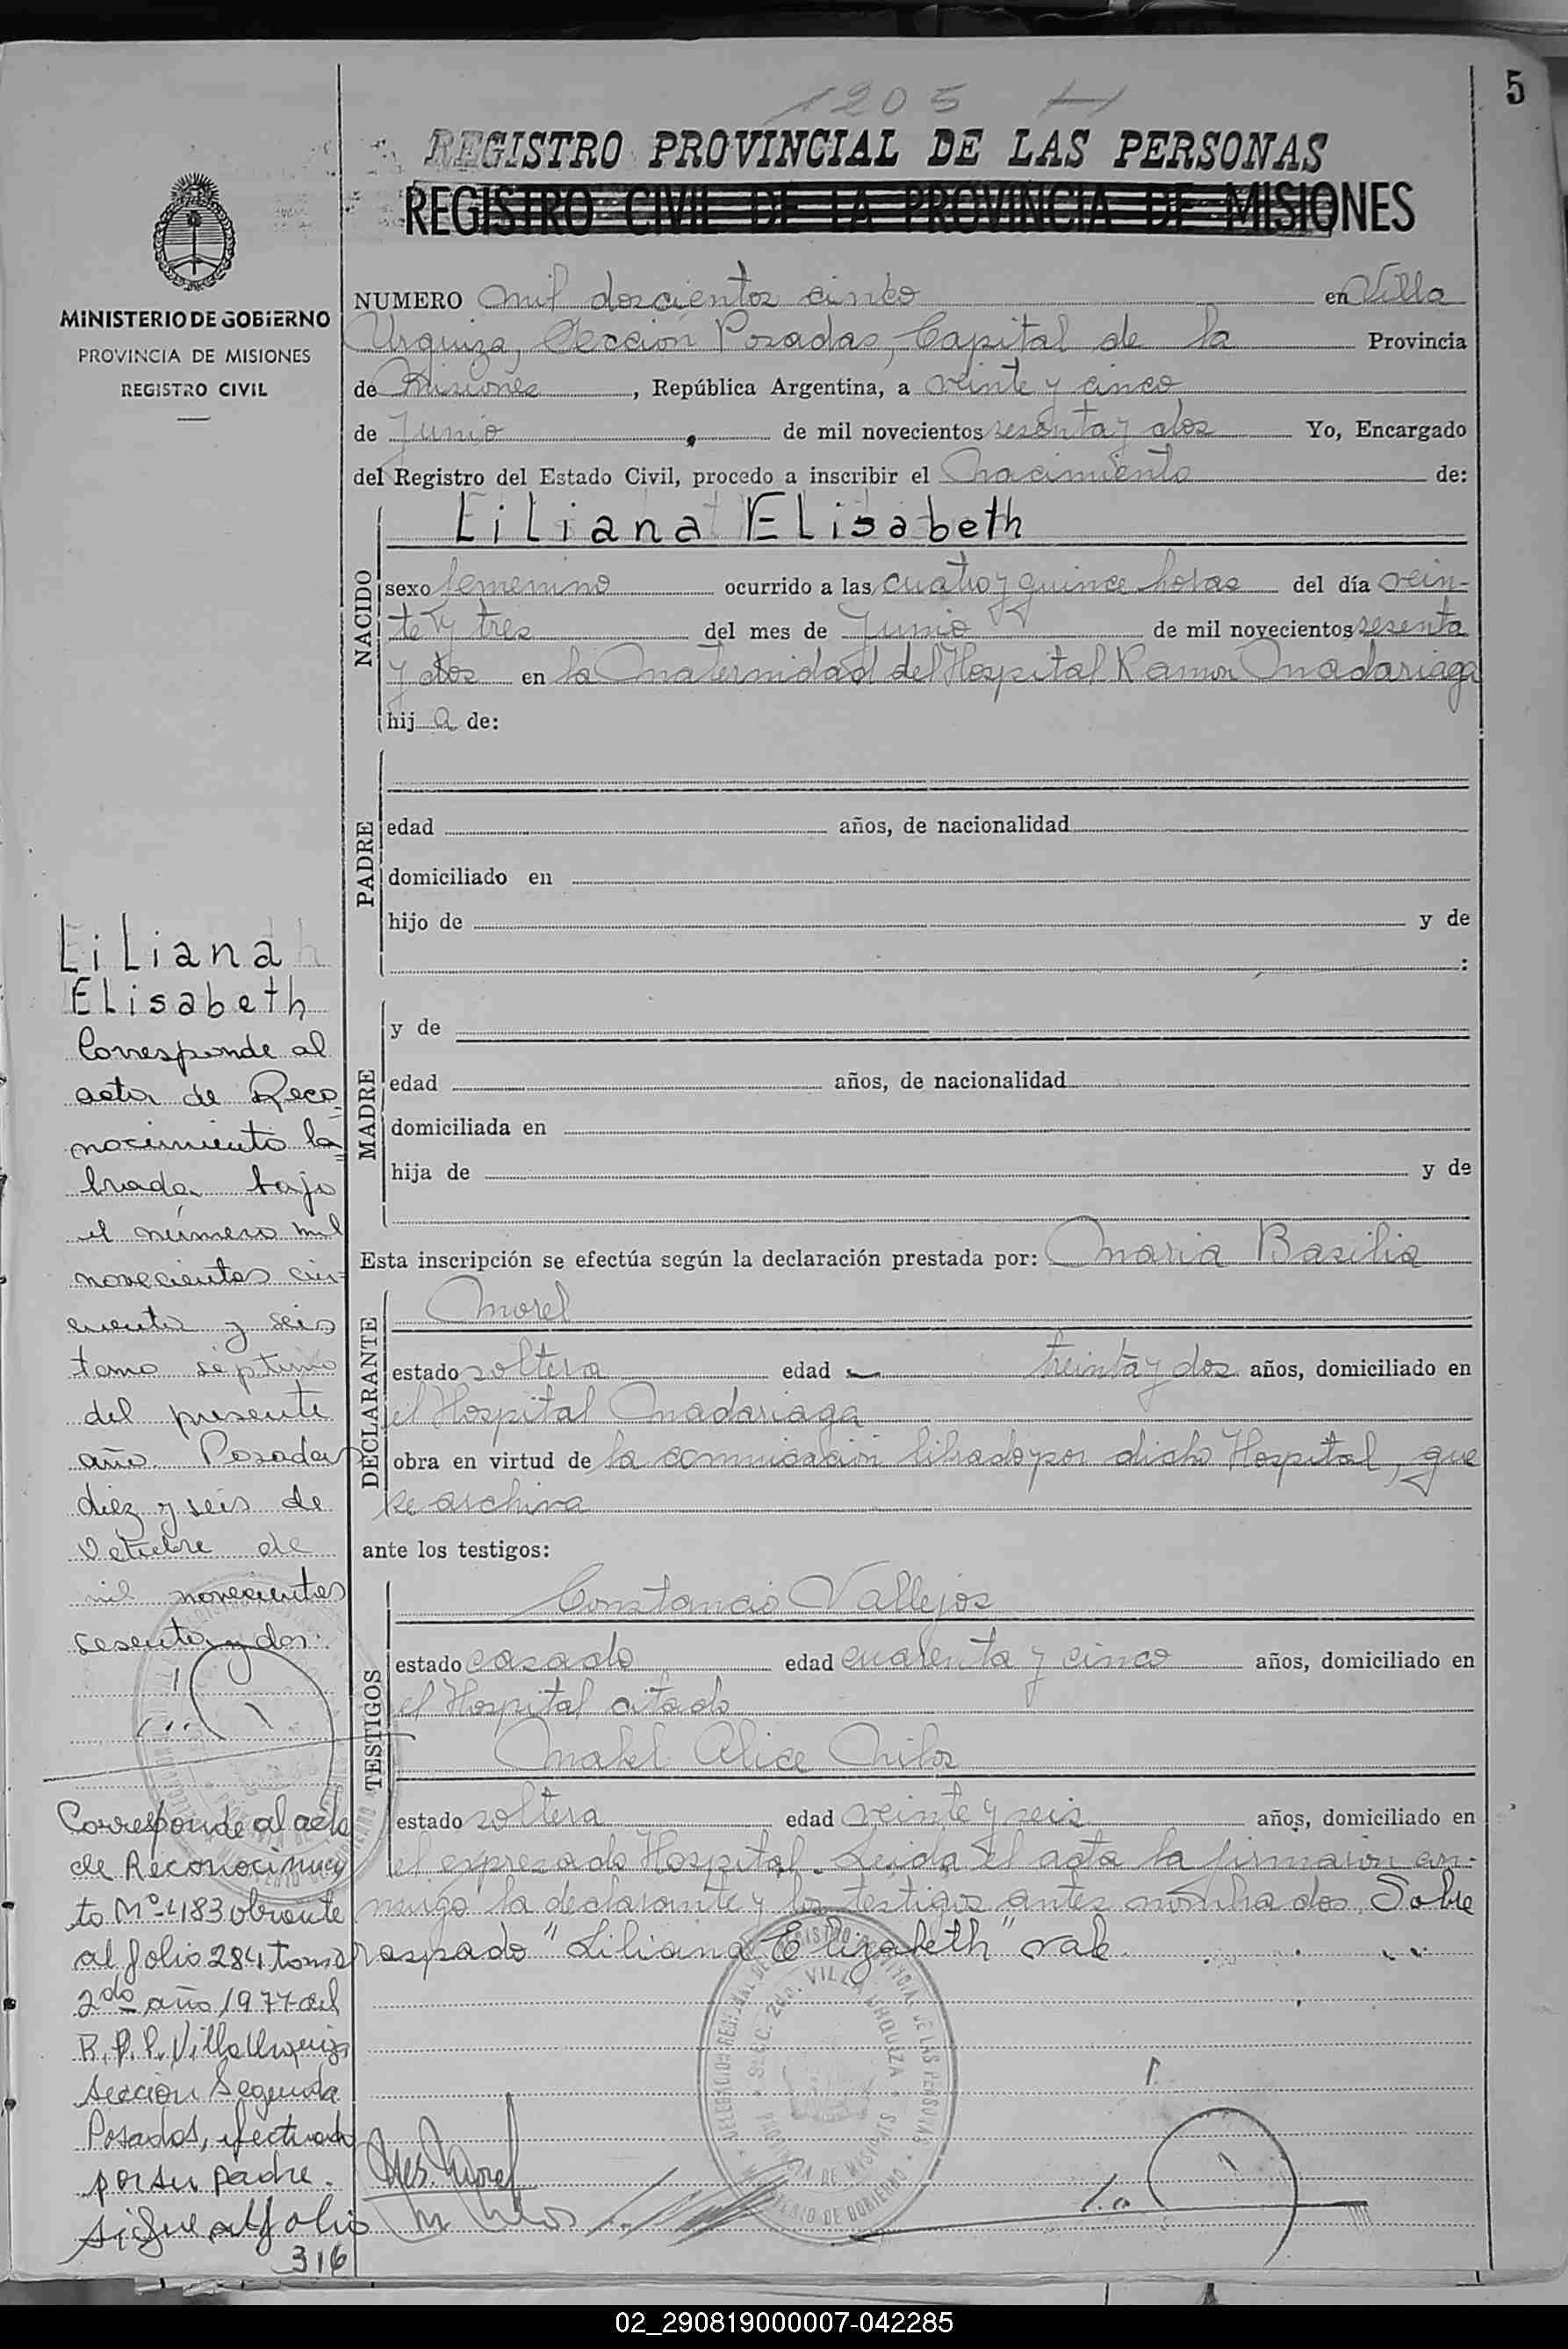 1205
5
REGISTRO PROVINCIAL DE LAS PERSONAS
REGISTRO CIVIL DE LA PROVINCIA DE MISIONES
MINISTERIO DE GOBIERNO
PROVINCIA DE MISIONES
REGISTRO CIVIL
NUMERO mil doscientos cinco en Villa
Urquiza, Sección Posadas, Capital de la Provincia
de Misiones, República Argentina, a veinte y cinco
de Junio de mil novecientos sesenta y dos Yo, Encargado
del Registro del Estado Civil, procedo a inscribir el nacimiento de:
NACIDO
Liliana Elisabeth
sexo femenino ocurrido a las cuatro y quince horas del día vein-
te y tres del mes de Junio de mil novecientos sesenta
y dos en la Maternidad del Hospital Ramon Madariaga
hij a de:
PADRE
edad años, de nacionalidad
domiciliado en
hijo de y de
:
MADRE
y de
edad años, de nacionalidad
domiciliada en
hija de y de
Esta inscripción se efectúa según la declaración prestada por: Maria Basilia
Morel
DECLARANTE
estado soltera edad treinta y dos años, domiciliado en
el Hospital Madariaga
obra en virtud de la comunicación librado por dicho Hospital, que
se archiva
ante los testigos:
TESTIGOS
Constancio Vallejos
estado casado edad cuarenta y cinco años, domiciliado en
el Hospital citado
Mabel Alice
estado soltera edad veinte y seis años, domiciliado en
el expresado Hospital. Leida el acta la firmaron con-
migo la declarante y los testigos antes nombrados. Sobre
raspado "Liliana Elizabeth" vale.
Liliana
Elisabeth
Corresponde al
acta de Reco
nocimiento la=
brada bajo
el número mil
novecientos cin=
cuenta y seis
tomo séptimo
del presente
año. Posadas
diez y seis de
Octubre de
mil novecientos
sesenta y dos.
Corresponde al acta
de Reconocimien
to Nº 483 obrante
al folio 284 tomo
2do año 1977 del
R.P.P. Villa Urquiza
sección Segunda
Posadas, efectuado
por su padre.
sigue al folio
316
Morel
DELEGACION REGIONAL DEL REGISTRO PROVINCIAL DE LAS PERSONAS
SECC. 2da. VILLA URQUIZA
PROVINCIA DE MISIONES
MINISTERIO DE GOBIERNO
02_290819000007-042285